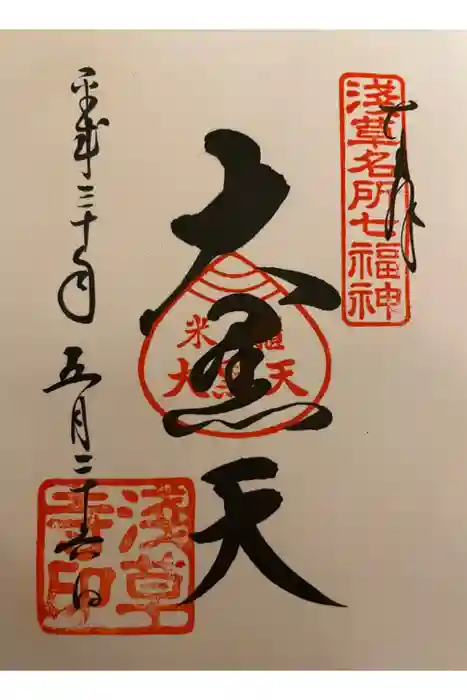 奉拝
淺草名所七福神
大黒天
米櫃
大黒天
平成三十年五月二十六日
淺草寺印